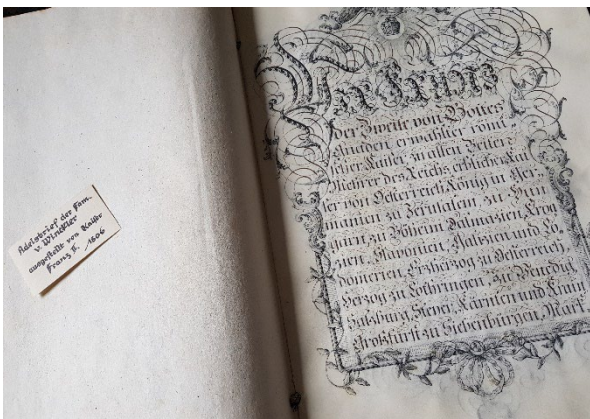 Adelsbrief der Fam.
v. Winckler
ausgestellt von Kaiser
Franz II. 1806
Wir Franz
der Zweite von Gottes
Gnaden erwählter römi
scher Kaiser, zu allen Zeiten
Mehrer des Reichs, erblicher Kai
ser von Oesterreich, König in Ger
manien zu Jerusalem, zu Hun
garn, zu Böheim Dalmazien, Kroa
zien, Slavonien, Halizien und Lo
domerien, Erzherzog zu Oesterreich,
Herzog zu Lothringen, zu Venedig,
Salzburg, Steyer, Kärnten und Krain
Großfürst zu Siebenbürgen, Mark